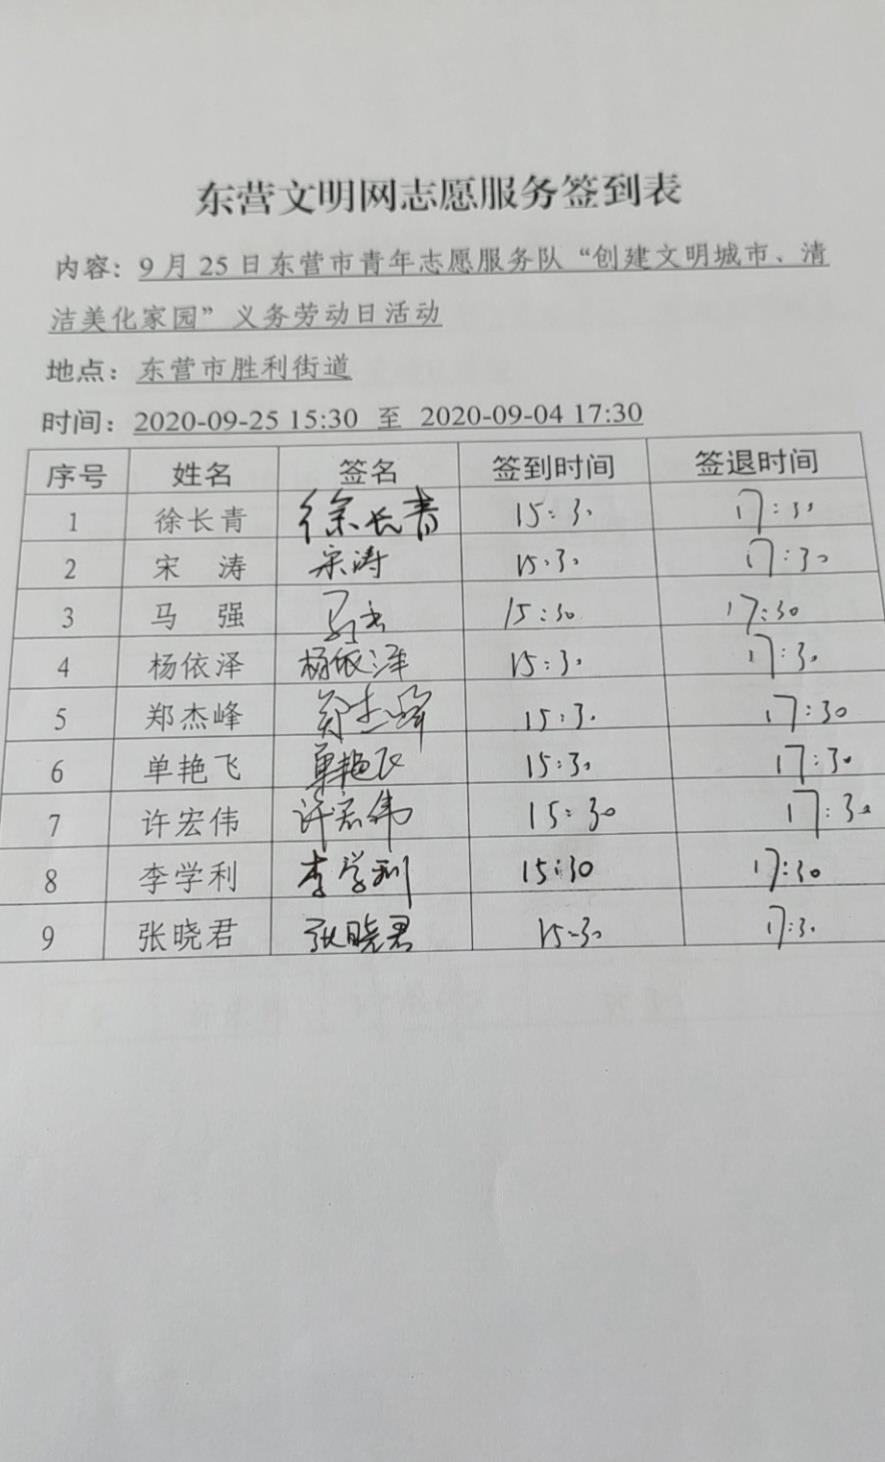 东营文明网志愿服务签到表
内容：9月25日东营市青年志愿服务队“创建文明城市、清
洁美化家园”义务劳动日活动
地点：东营市胜利街道
时间：2020-09-25 15:30 至 2020-09-04 17:30
序号 姓名 签名 签到时间 签退时间
1 徐长青 徐长青 15:30 17:30
2 宋 涛 宋涛 15:30 17:30
3 马 强 马强 15:30 17:30
4 杨依泽 杨依泽 15:30 17:30
5 郑杰峰 郑杰峰 15:30 17:30
6 单艳飞 单艳飞 15:30 17:30
7 许宏伟 许宏伟 15:30 17:30
8 李学利 李学利 15:30 17:30
9 张晓君 张晓君 15:30 17:30